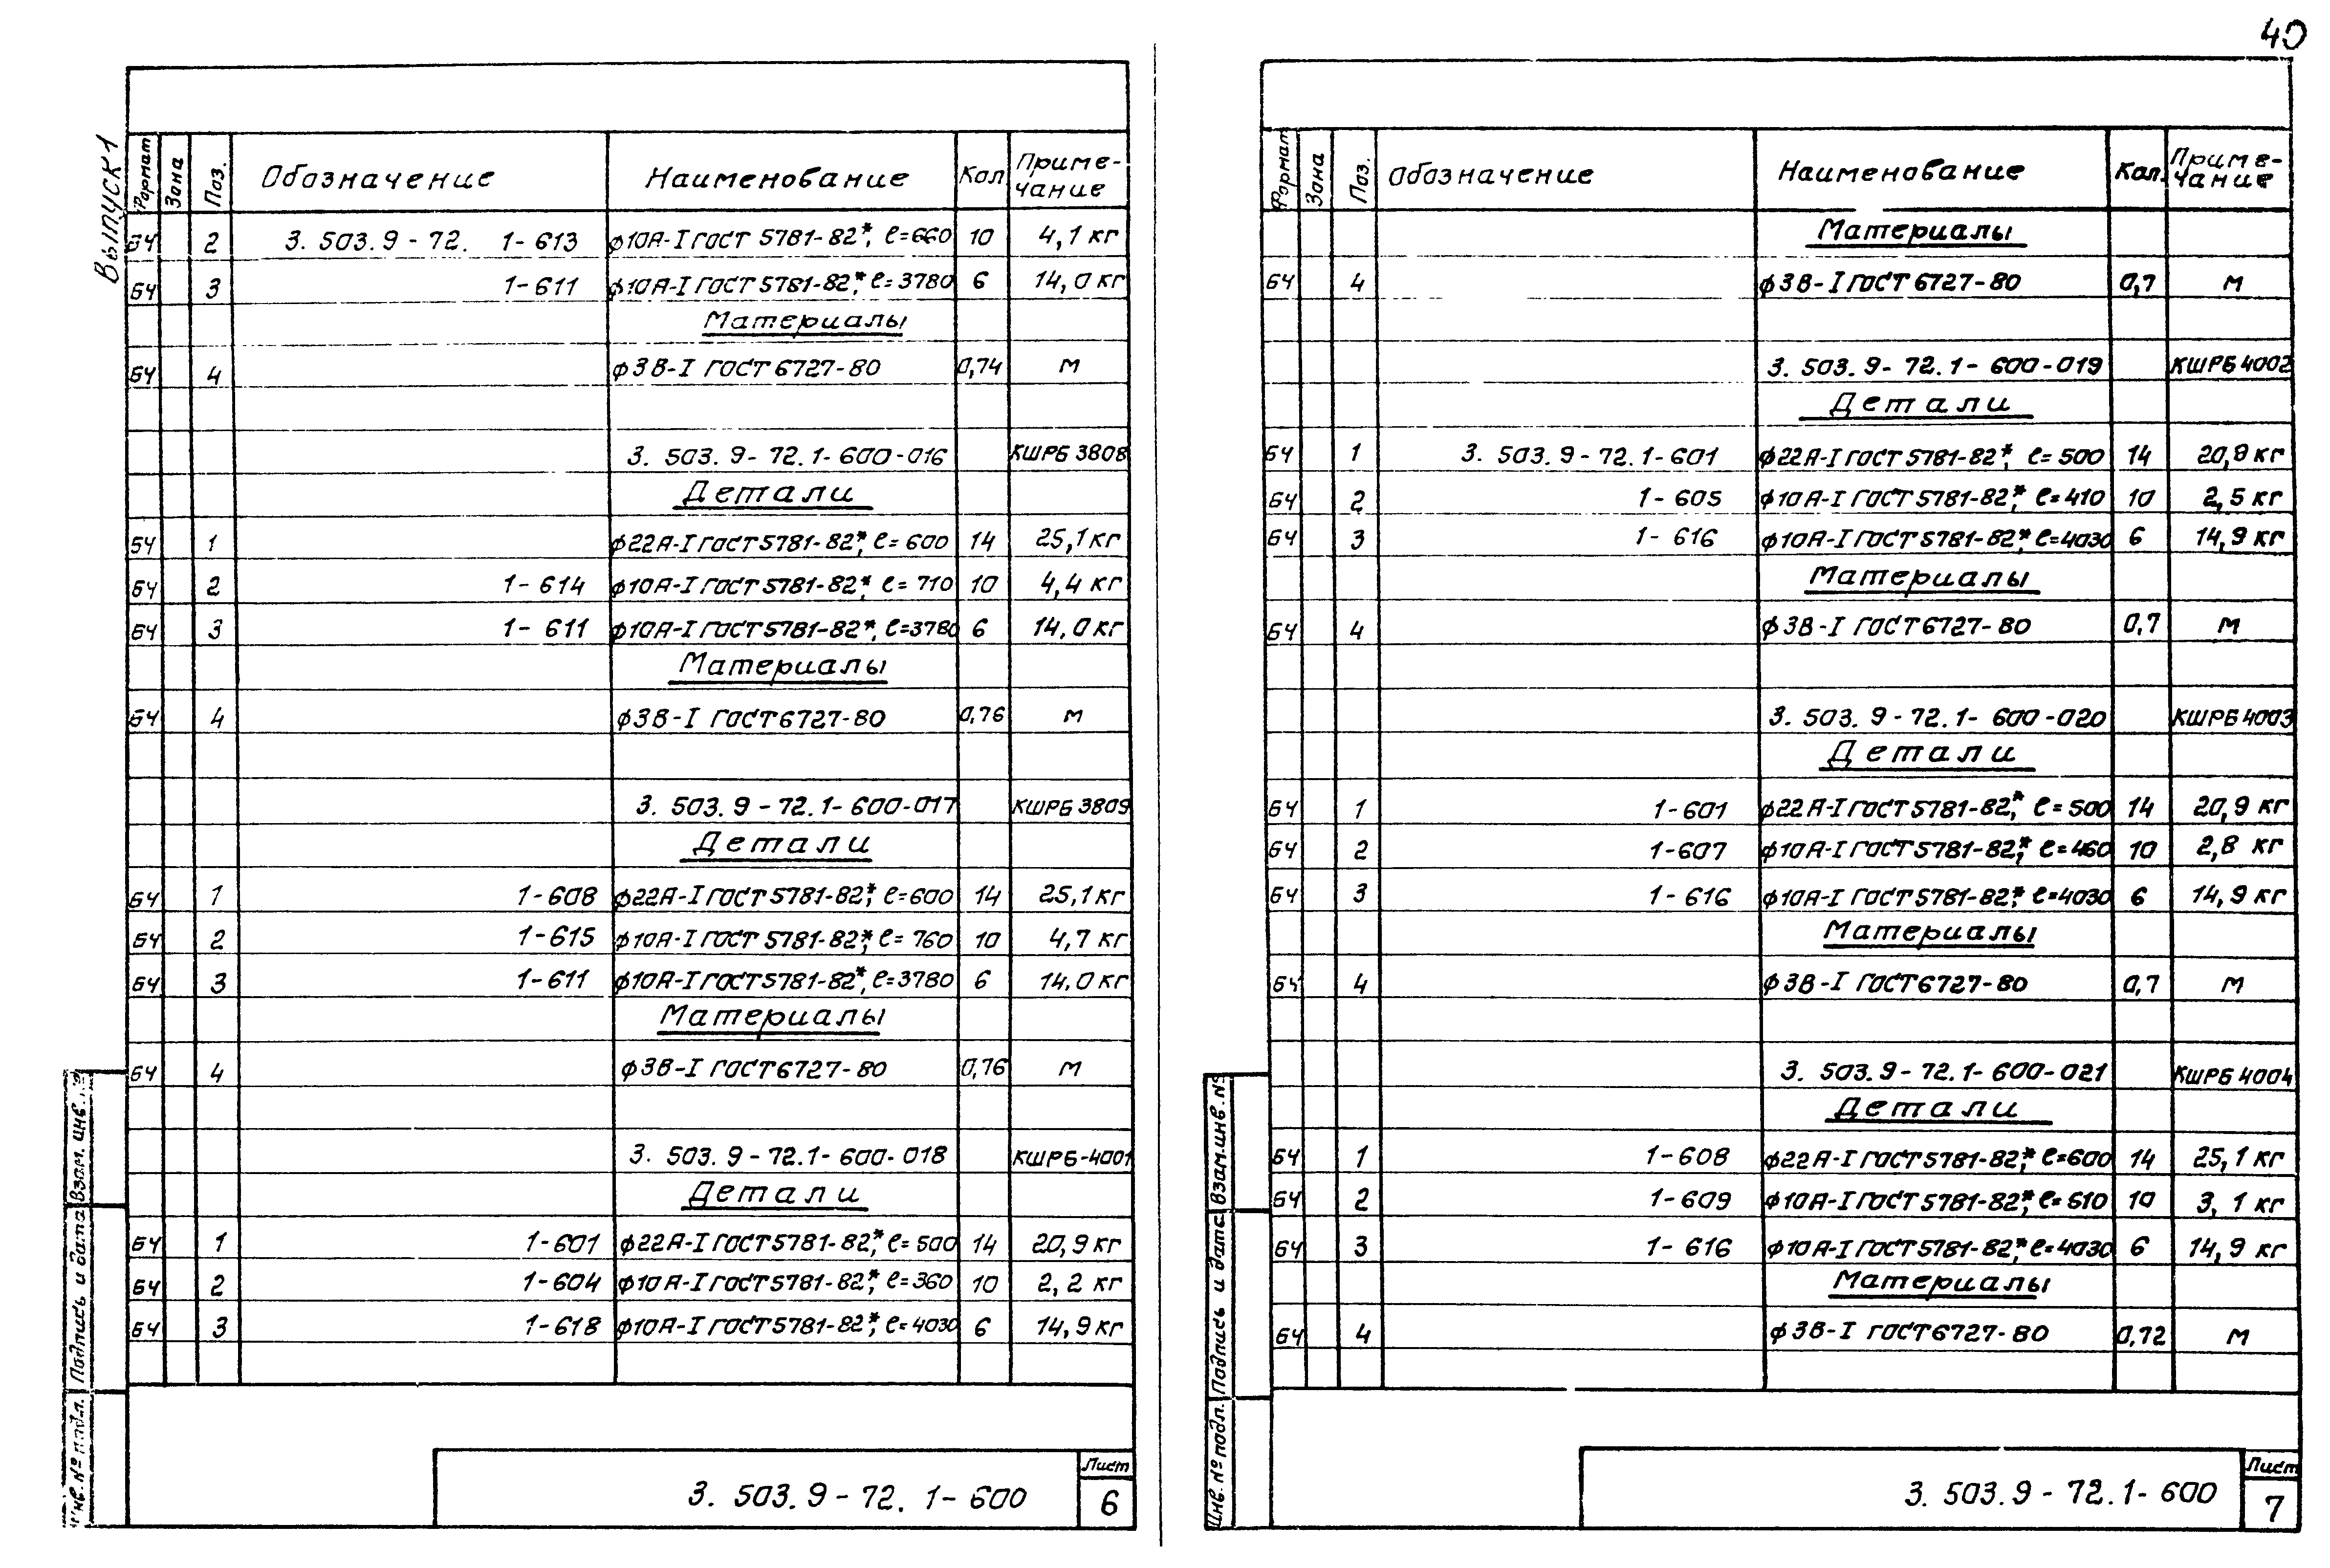 40
Выпуск 1
Формат Зона Поз. Обозначение Наименование Кол. Примечание
БЧ 2 3.503.9-72. 1-613 ф10А-I ГОСТ 5781-82*, ℓ=660 10 4,1 кг
БЧ 3 1-611 ф10А-I ГОСТ 5781-82*, ℓ=3780 6 14,0 кг
Материалы
БЧ 4 ф3В-I ГОСТ 6727-80 0,74 м
3.503.9-72.1-600-016 КШРБ 3808
Детали
БЧ 1 ф22А-I ГОСТ 5781-82*, ℓ=600 14 25,1 кг
БЧ 2 1-614 ф10А-I ГОСТ 5781-82*, ℓ=710 10 4,4 кг
БЧ 3 1-611 ф10А-I ГОСТ 5781-82*, ℓ=3780 6 14,0 кг
Материалы
БЧ 4 ф3В-I ГОСТ 6727-80 0,76 м
3.503.9-72.1-600-017 КШРБ 3809
Детали
БЧ 1 1-608 ф22А-I ГОСТ 5781-82*, ℓ=600 14 25,1 кг
БЧ 2 1-615 ф10А-I ГОСТ 5781-82*, ℓ=760 10 4,7 кг
БЧ 3 1-611 ф10А-I ГОСТ 5781-82*, ℓ=3780 6 14,0 кг
Материалы
БЧ 4 ф3В-I ГОСТ 6727-80 0,76 м
3.503.9-72.1-600-018 КШРБ-4001
Детали
БЧ 1 1-601 ф22А-I ГОСТ 5781-82*, ℓ=500 14 20,9 кг
БЧ 2 1-604 ф10А-I ГОСТ 5781-82*, ℓ=360 10 2,2 кг
БЧ 3 1-618 ф10А-I ГОСТ 5781-82*, ℓ=4030 6 14,9 кг
Инв. № подл. Подпись и дата Взам. инв. №
3.503.9-72.1-600
Лист
6
Формат Зона Поз. Обозначение Наименование Кол. Примечание
Материалы
БЧ 4 ф3В-I ГОСТ 6727-80 0,7 м
3.503.9-72.1-600-019 КШРБ 4002
Детали
БЧ 1 3.503.9-72.1-601 ф22А-I ГОСТ 5781-82*, ℓ=500 14 20,9 кг
БЧ 2 1-605 ф10А-I ГОСТ 5781-82*, ℓ=410 10 2,5 кг
БЧ 3 1-616 ф10А-I ГОСТ 5781-82*, ℓ=4030 6 14,9 кг
Материалы
БЧ 4 ф3В-I ГОСТ 6727-80 0,7 м
3.503.9-72.1-600-020 КШРБ 4003
Детали
БЧ 1 1-601 ф22А-I ГОСТ 5781-82*, ℓ=500 14 20,9 кг
БЧ 2 1-607 ф10А-I ГОСТ 5781-82*, ℓ=460 10 2,8 кг
БЧ 3 1-616 ф10А-I ГОСТ 5781-82*, ℓ=4030 6 14,9 кг
Материалы
БЧ 4 ф3В-I ГОСТ 6727-80 0,7 м
3.503.9-72.1-600-021 КШРБ 4004
Детали
БЧ 1 1-608 ф22А-I ГОСТ 5781-82*, ℓ=600 14 25,1 кг
БЧ 2 1-609 ф10А-I ГОСТ 5781-82*, ℓ=510 10 3,1 кг
БЧ 3 1-616 ф10А-I ГОСТ 5781-82*, ℓ=4030 6 14,9 кг
Материалы
БЧ 4 ф3В-I ГОСТ 6727-80 0,72 м
Инв. № подл. Подпись и дата Взам. инв. №
3.503.9-72.1-600
Лист
7